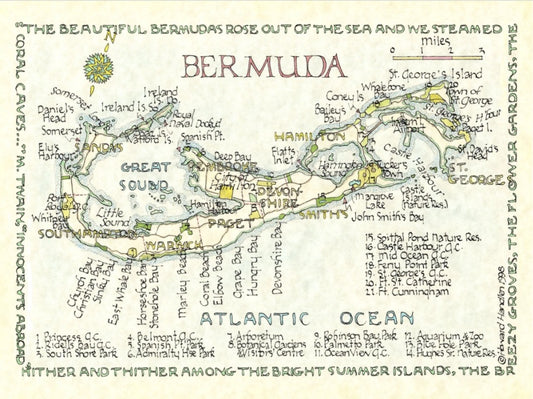 THE BEAUTIFUL BERMUDAS ROSE OUT OF THE SEA AND WE STEAMED
HITHER AND THITHER AMONG THE BRIGHT SUMMER ISLANDS, THE BR
EEZY GROVES, THE FLOWER GARDENS, THE
CORAL CAVES... M. TWAIN: INNOCENTS ABROAD
N
miles
0 1 2 3
BERMUDA
St. George's Island
Whalebone Bay
Town of St. George
Coney I.
Bailey's Bay
St. George's Hbour
Paget I.
Airport
St. David's Head
ST. GEORGE
Castle Harbour
Castle Harbour Islands (Nature Res.)
Tucker's Town
Harrington Sound
HAMILTON
Flatts Inlet
Mangrove Lake
John Smith's Bay
SMITH'S
Somerset Long Bay
Ireland I.
Ireland Is.
Royal Naval Dockyd
Daniel's Head
Somerset
Watford Is.
Spanish Pt.
Ely's Harbour
SANDYS
GREAT SOUND
Deep Bay
PEMBROKE
City of Hamilton
DEVONSHIRE
Hamilton Harbour
PAGET
Little Sound
Whitney Bay
SOUTHAMPTON
WARWICK
Church Bay
Christian Bay
Sinky Bay
East Whale Bay
Horseshoe Bay
Stonehole Bay
Marley Beach
Coral Beach
Elbow Beach
Grape Bay
Hungry Bay
Devonshire Bay
ATLANTIC OCEAN
1. Princess G.C.
2. Ridells Bay G.C.
3. South Shore Park
4. Belmont G.C.
5. Spanish Pt Park
6. Admiralty Hse Park
7. Arboretum
8. Botanical Gardens & Visitors' Centre
9. Robinson Bay Park
10. Palmetto Park
11. Ocean View G.C.
12. Aquarium & Zoo
13. Blue Hole Park
14. Hughes Sr. Nature Res.
15. Spittal Pond Nature Res.
16. Castle Harbour G.C.
17. Mid Ocean G.C.
18. Ferry Point Park
19. St. George's G.C.
20. Ft. St. Catherine
21. Ft. Cunningham